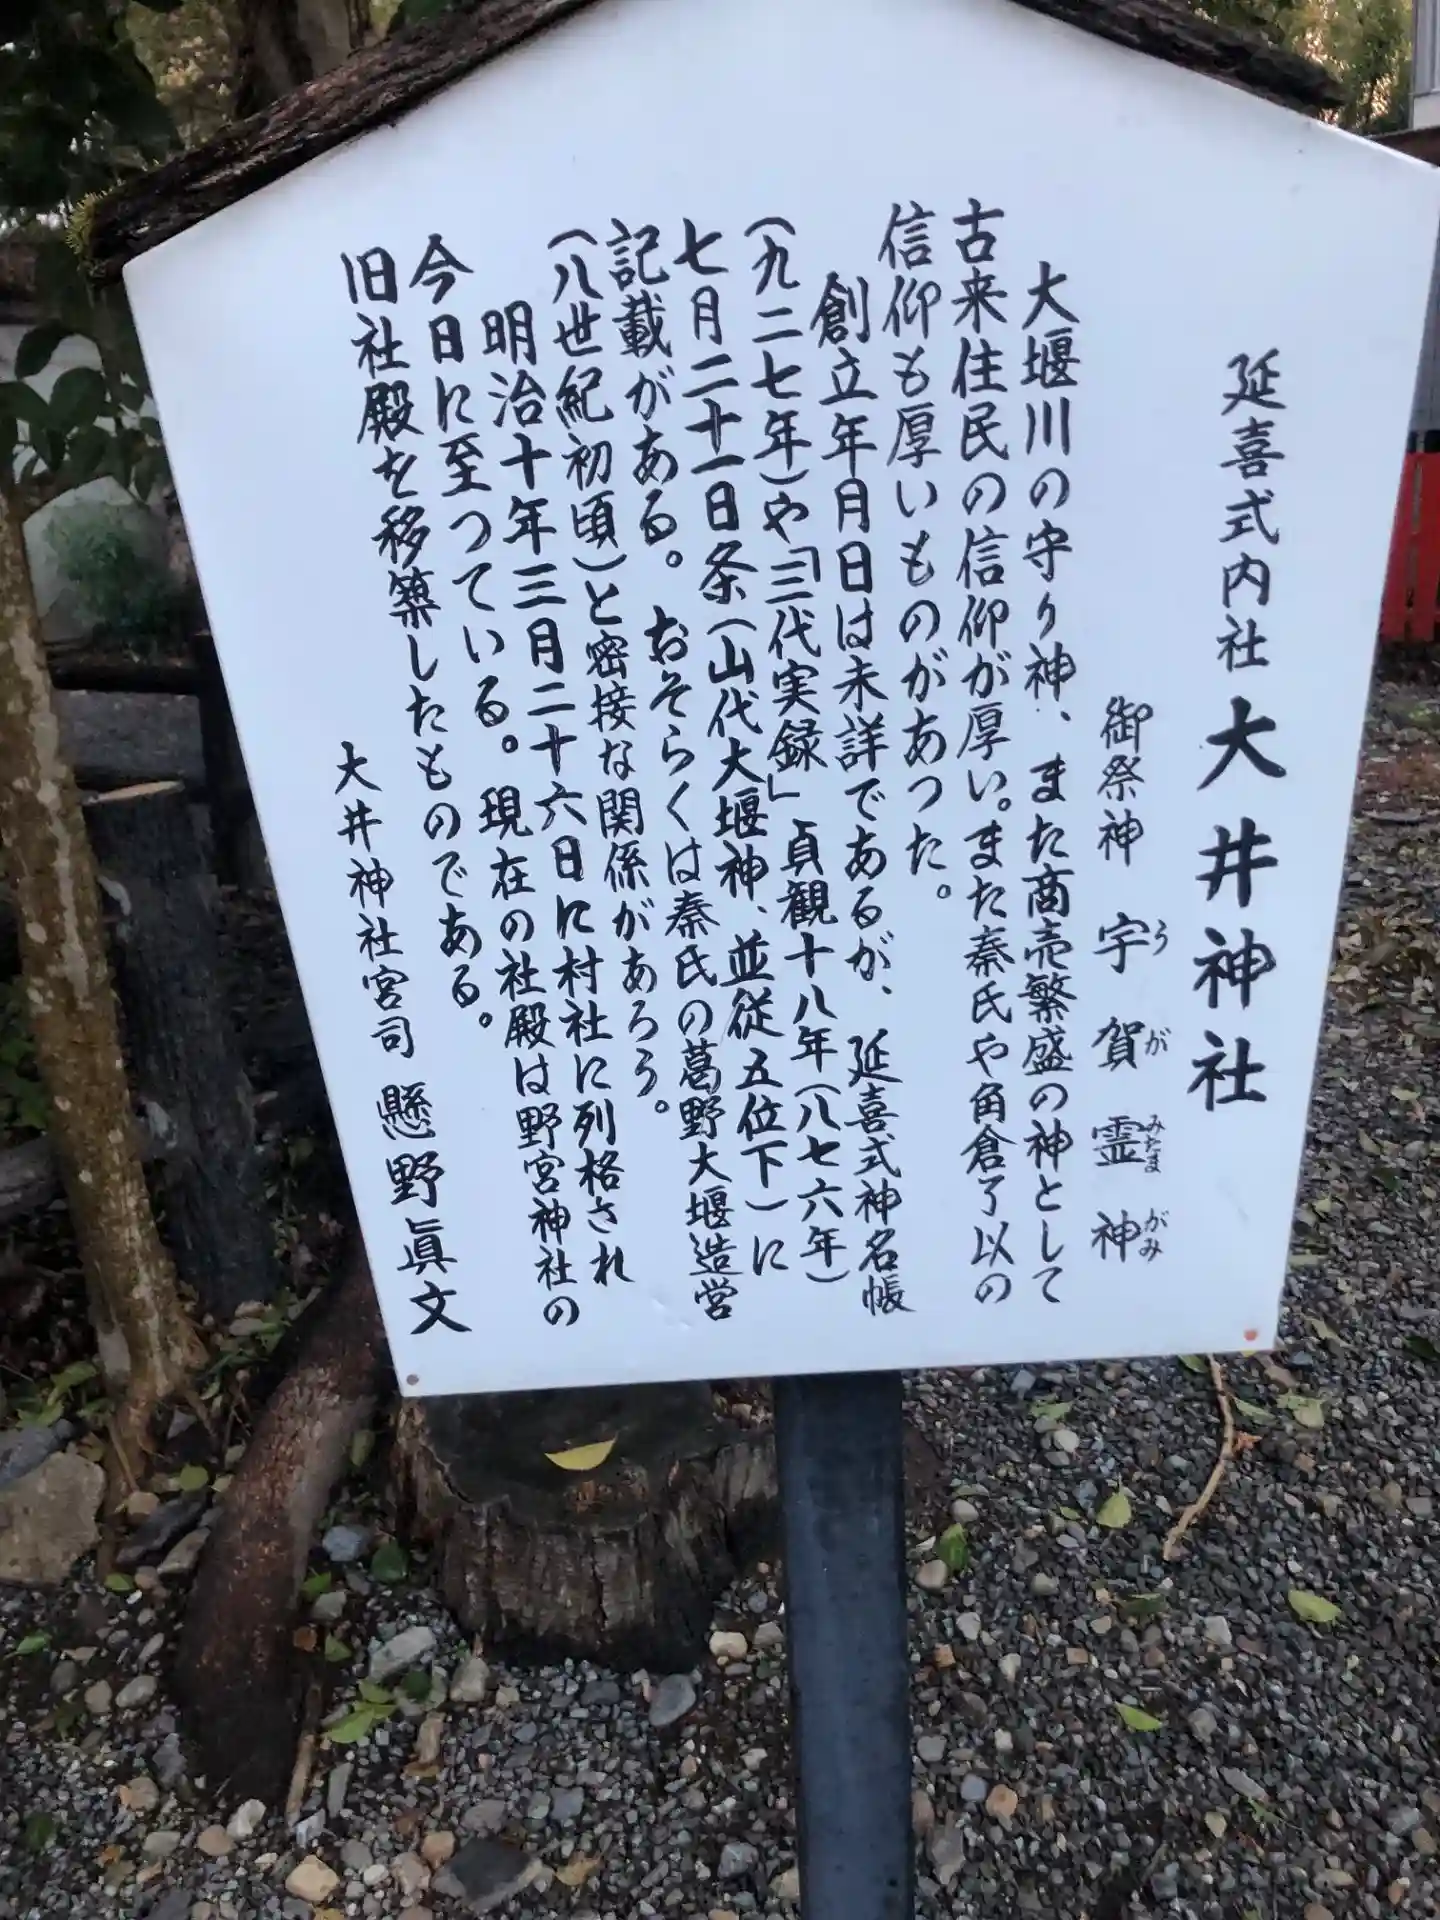 延喜式内社 大井神社
御祭神 宇賀霊神
う が みたま がみ
大堰川の守り神、また商売繁盛の神として
古来住民の信仰が厚い。また秦氏や角倉了以の
信仰も厚いものがあつた。
創立年月日は未詳であるが、延喜式神名帳
(九二七年)や「三代実録」貞観十八年(八七六年)
七月二十一日条(山代大堰神、並従五位下)に
記載がある。おそらくは秦氏の葛野大堰造営
(八世紀初頃)と密接な関係があろう。
明治十年三月二十六日に村社に列格され
今日に至つている。現在の社殿は野宮神社の
旧社殿を移築したものである。
大井神社宮司 懸野眞文